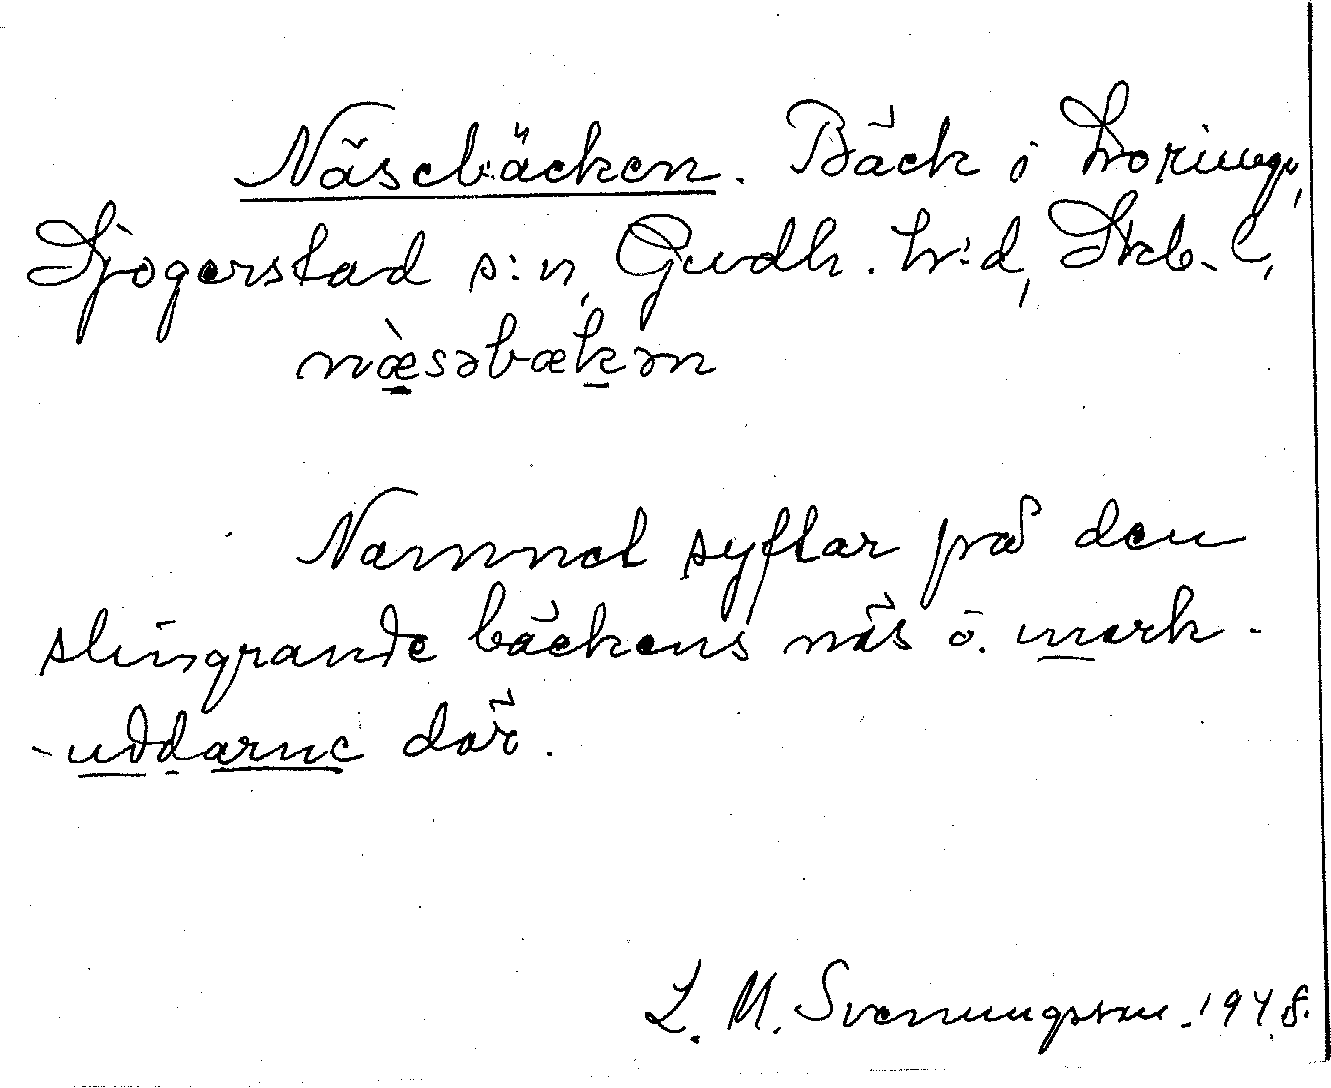 Näsebäcken. Bäck i Lovenegr,
Sjogerstad s:n, Gudh. h:d, Skb. l,
næ̀səbækən
Namnet syftar på den
slingrande bäckens näs o. mark-
-uddarne där.
L. M. Svenungsson. 1948.